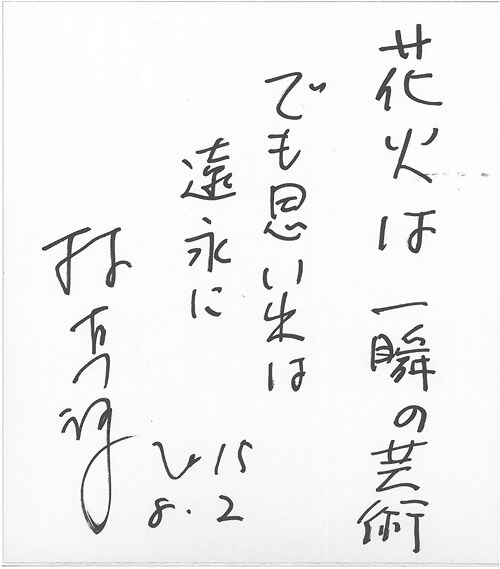 花火は一瞬の芸術
でも思い出は
遠永に
林
2015
8.2